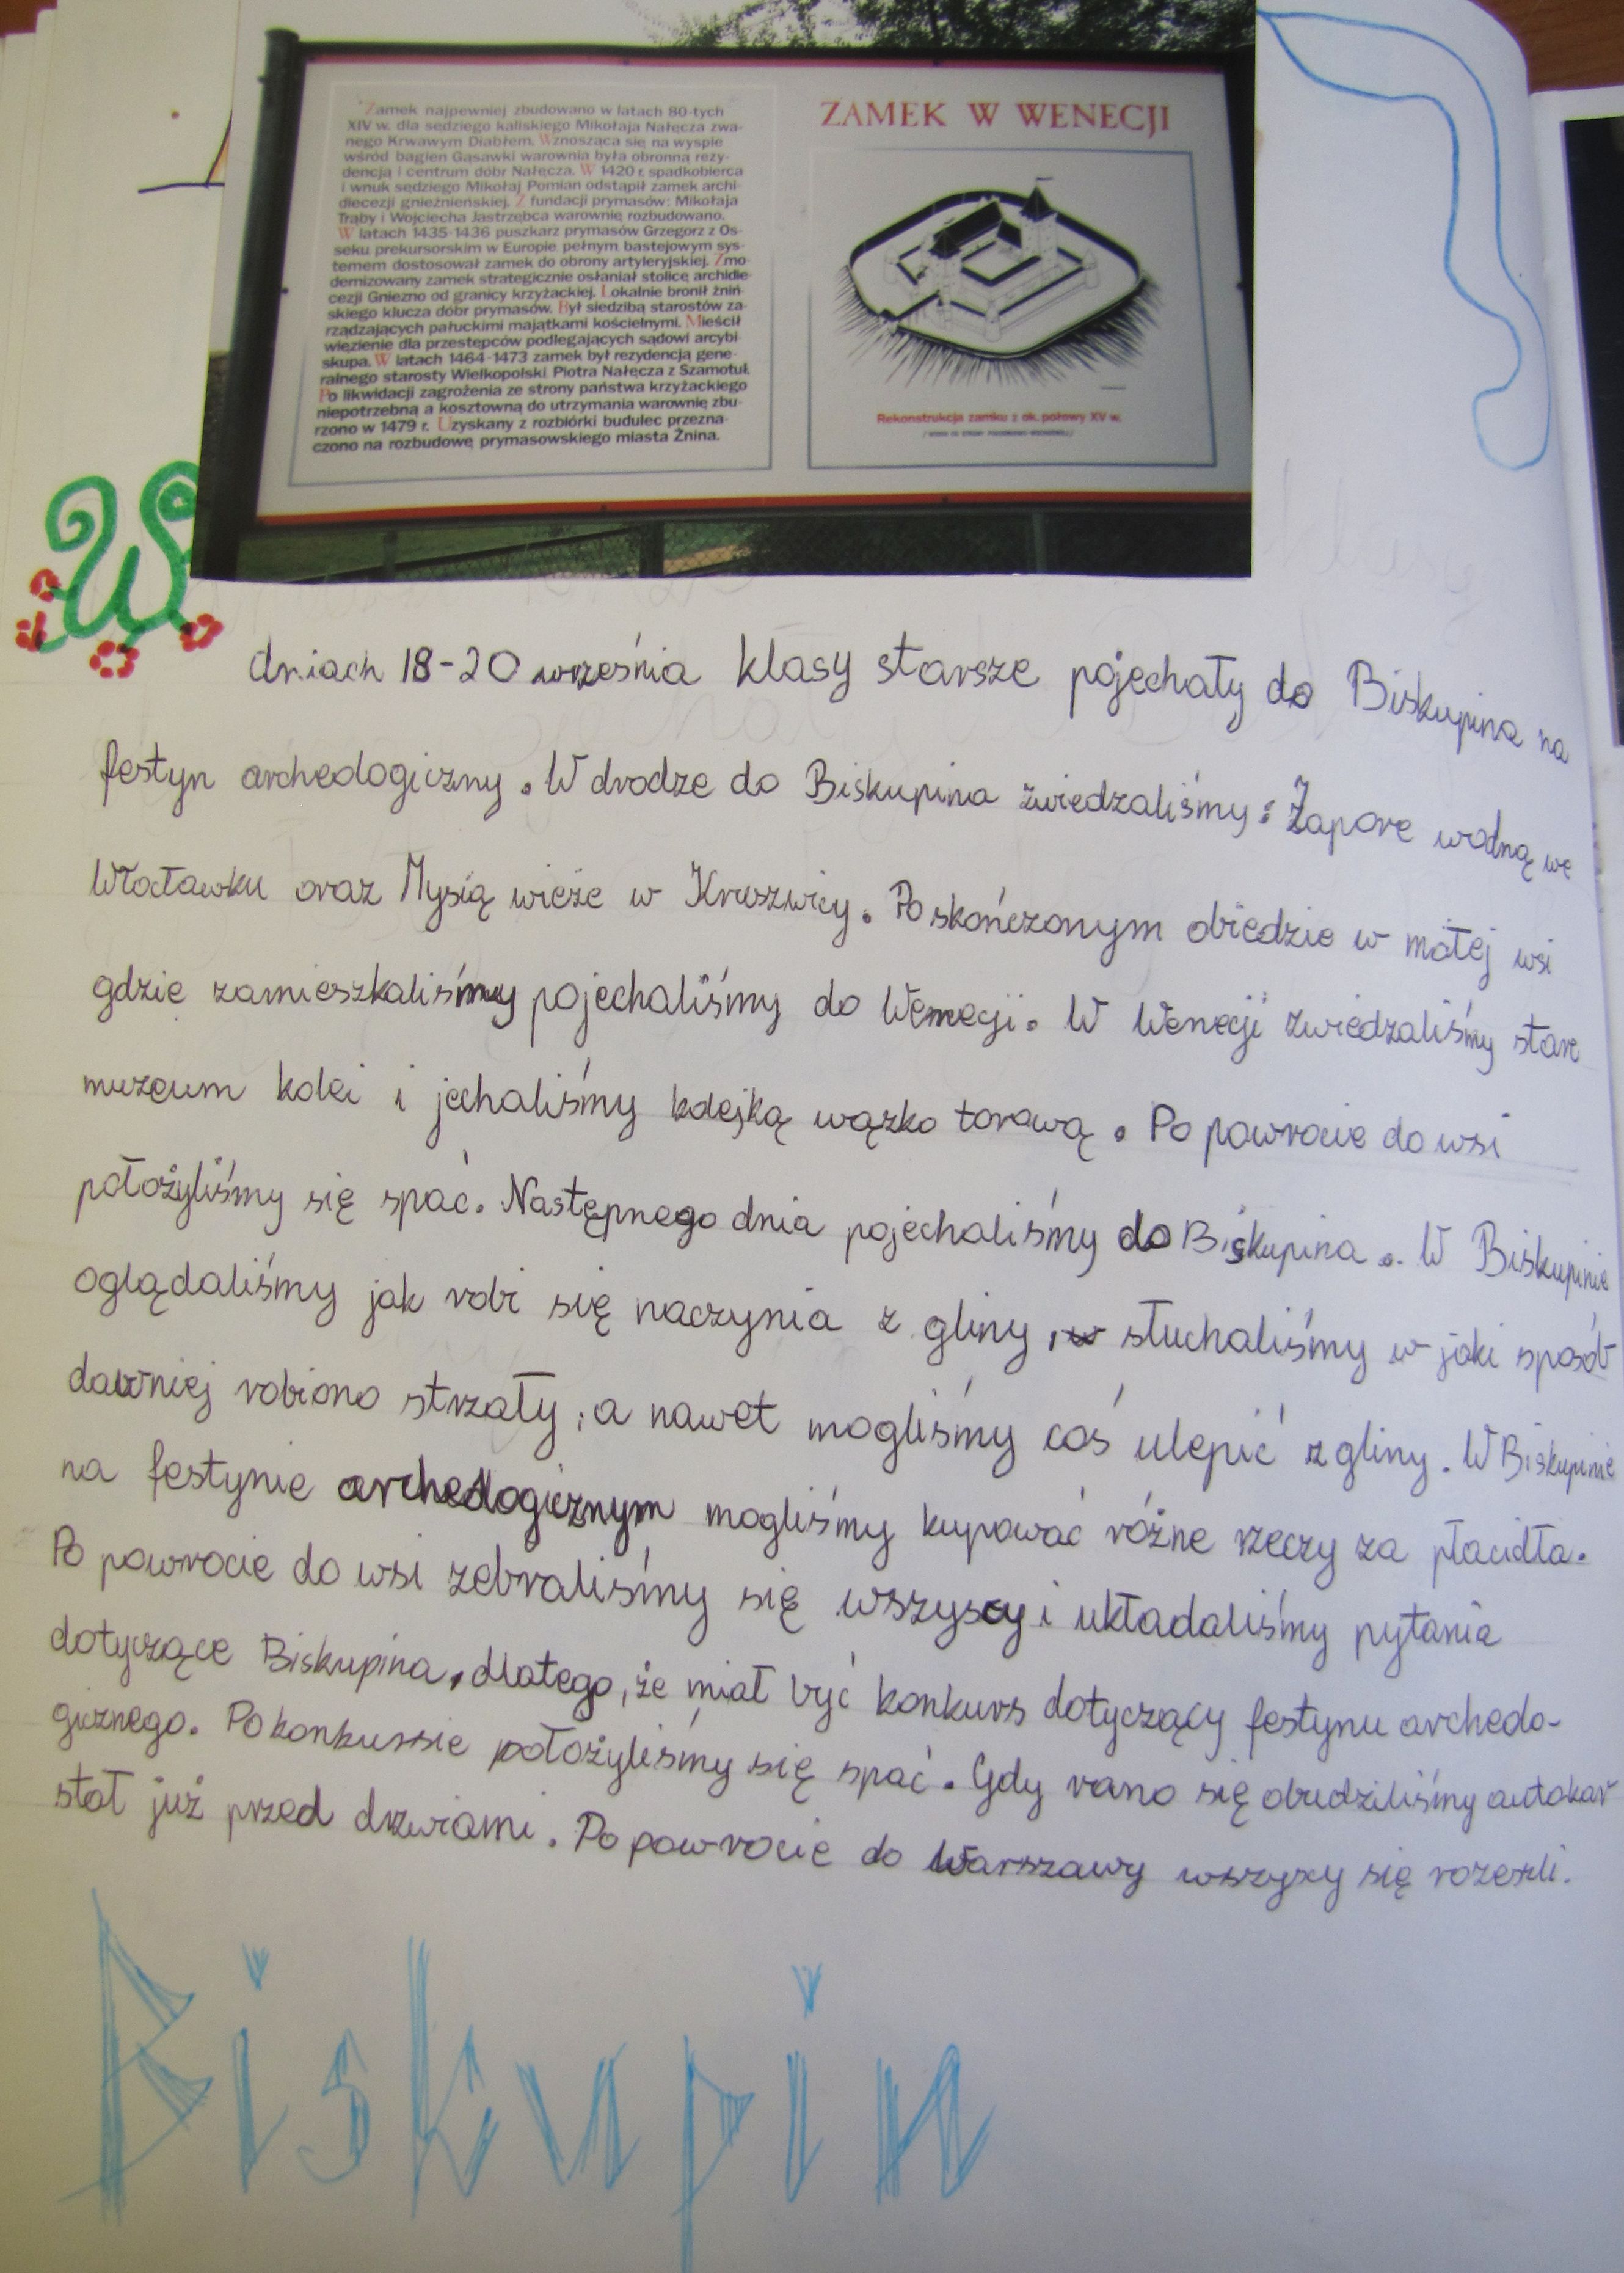 Zamek najpewniej zbudowano w latach 80-tych
XIV w. dla sędziego kaliskiego Mikołaja Nałęcza zwa-
nego Krwawym Diabłem. Wznosząca się na wyspie
wśród bagien Gąsawki warownia była obronną rezy-
dencją i centrum dóbr Nałęcza. W 1420 r. spadkobierca
i wnuk sędziego Mikołaj Pomian odstąpił zamek archi-
diecezji gnieźnieńskiej. Z fundacji prymasów: Mikołaja
Trąby i Wojciecha Jastrzębca warownię rozbudowano.
W latach 1435-1436 puszkarz prymasów Grzegorz z Os-
seku prekursorskim w Europie pełnym bastejowym sys-
temem dostosował zamek do obrony artyleryjskiej. Zmo-
dernizowany zamek strategicznie osłaniał stolicę archidie-
cezji Gniezno od granicy krzyżackiej. Lokalnie bronił żniń-
skiego klucza dóbr prymasów. Był siedzibą starostów za-
rządzających pałuckimi majątkami kościelnymi. Mieścił
więzienie dla przestępców podlegających sądowi arcybi-
skupa. W latach 1464-1473 zamek był rezydencją gene-
ralnego starosty Wielkopolski Piotra Nałęcza z Szamotuł.
Po likwidacji zagrożenia ze strony państwa krzyżackiego
niepotrzebną a kosztowną do utrzymania warownię zbu-
rzono w 1479 r. Uzyskany z rozbiórki budulec przezna-
czono na rozbudowę prymasowskiego miasta Żnina.
ZAMEK W WENECJI
Rekonstrukcja zamku z ok. połowy XV w.
W dniach 18-20 września klasy starsze pojechały do Biskupina na
festyn archeologiczny. W drodze do Biskupina zwiedzaliśmy: Zaporę wodną we
Włocławku oraz Mysią wieże w Kruszwicy. Po skończonym obiedzie w małej wsi
gdzie zamieszkaliśmy pojechaliśmy do Wenecji. W Wenecji zwiedzaliśmy stare
muzeum kolei i jechaliśmy kolejką wązko torową. Po powrocie do wsi
położyliśmy się spać. Następnego dnia pojechaliśmy do Biskupina. W Biskupinie
oglądaliśmy jak robi się naczynia z gliny, słuchaliśmy w jaki sposób
dawniej robiono strzały, a nawet mogliśmy coś ulepić z gliny. W Biskupinie
na festynie archeologicznym mogliśmy kupować różne rzeczy za płacidła.
Po powrocie do wsi zebraliśmy się wszyscy i układaliśmy pytania
dotyczące Biskupina, dlatego, że miał być konkurs dotyczący festynu archeolo-
gicznego. Po konkursie położyliśmy się spać. Gdy rano się obudziliśmy autokar
stał już przed drzwiami. Po powrocie do Warszawy wszyscy się rozeszli.
Biskupin